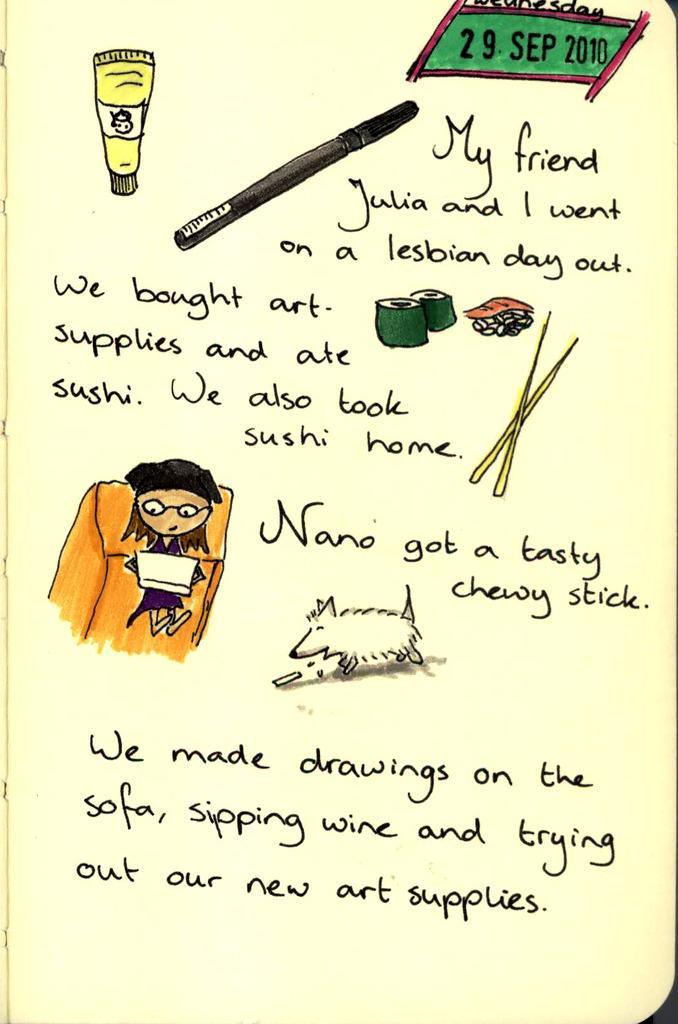 Wednesday
29. SEP 2010
My friend
Julia and I went
on a lesbian day out.
We bought art-
supplies and ate
sushi. We also took
sushi home.
Nano got a tasty
chewy stick.
We made drawings on the
sofa, sipping wine and trying
out our new art supplies.